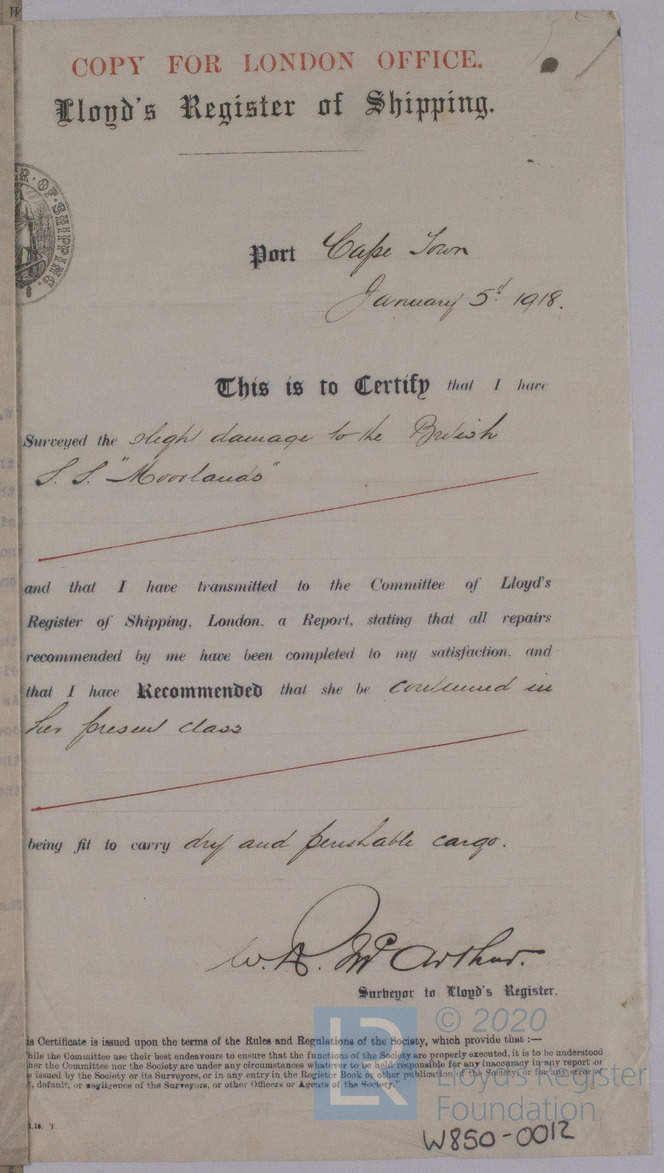 COPY FOR LONDON OFFICE.
Lloyd's Register of Shipping.
R · OF · SHIPPING
Port Cape Town
January 5th 1918.
This is to Certify that I have
Surveyed the sligh damage to the British
S.S. "Moorlands"
and that I have transmitted to the Committee of Lloyd's
Register of Shipping, London, a Report, stating that all repairs
recommended by me have been completed to my satisfaction, and
that I have Recommended that she be continued in
her present class
being fit to carry dry and perishable cargo.
W. R. McArthur.
Surveyor to Lloyd's Register.
is Certificate is issued upon the terms of the Rules and Regulations of the Society, which provide that :—
hile the Committee use their best endeavours to ensure that the functions of the Society are properly executed, it is to be understood
her the Committee nor the Society are under any circumstances whatever to be held responsible for any inaccuracy in any report or
e issued by the Society or its Surveyors, or in any entry in the Register Book or other publication of the Society, or for any error of
t, default, or negligence of the Surveyors, or other Officers or Agents of the Society."
© 2020
LR
Lloyd's Register
Foundation
W850-0012